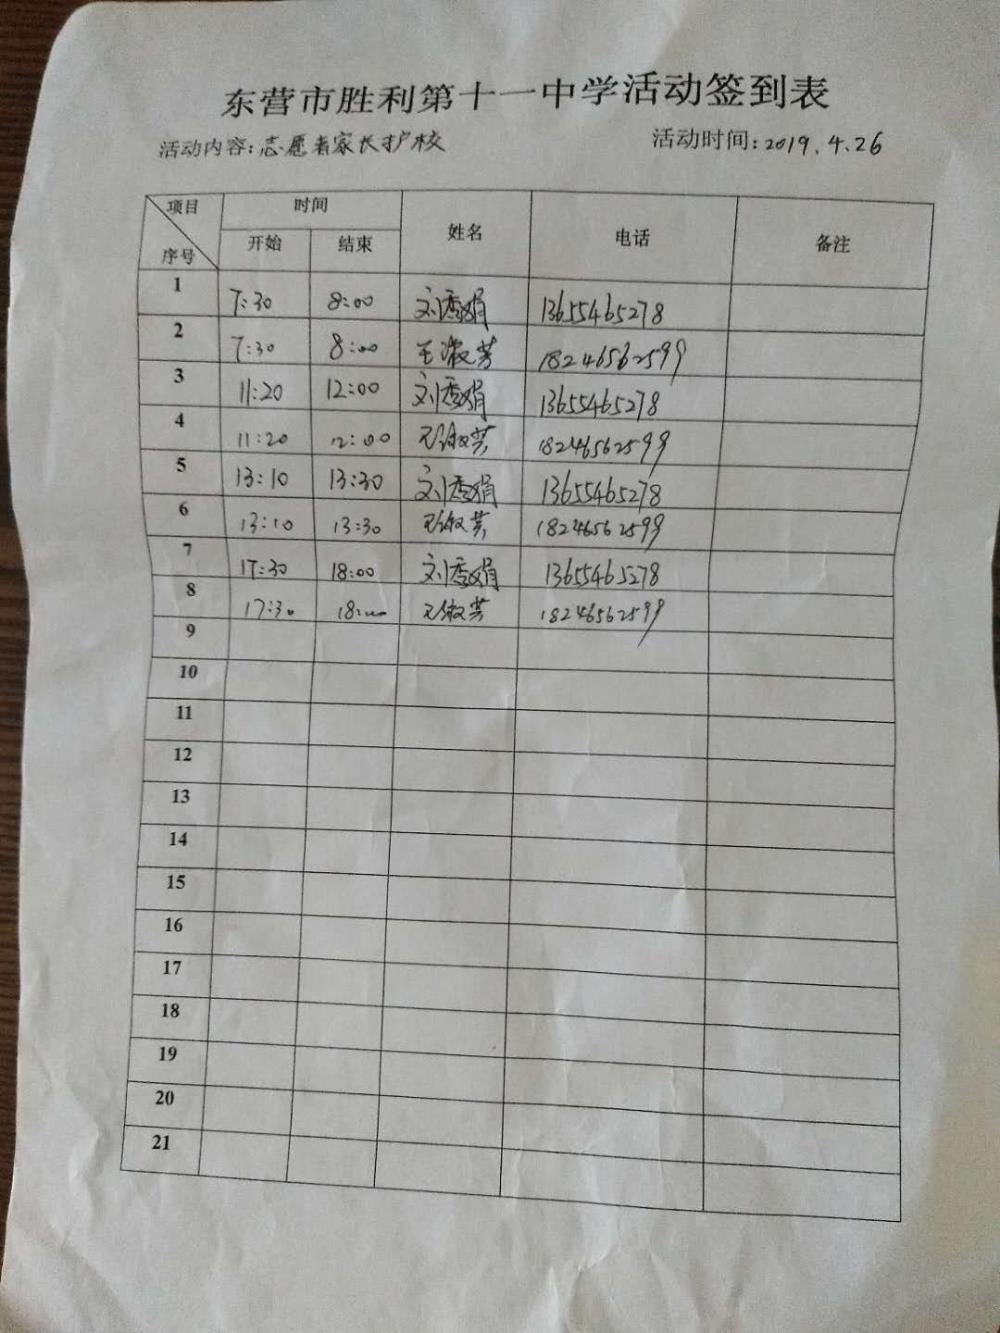 东营市胜利第十一中学活动签到表
活动内容:志愿者家长护校 活动时间:2019.4.26
项目 时间 姓名 电话 备注
序号 开始 结束
1 7:30 8:00 刘秀娟 13655465278
2 7:30 8:00 王淑芳 18246562599
3 11:20 12:00 刘秀娟 13655465278
4 11:20 12:00 王淑芳 18246562599
5 13:10 13:30 刘秀娟 13655465278
6 13:10 13:30 王淑芳 18246562599
7 17:30 18:00 刘秀娟 13655465278
8 17:30 18:00 王淑芳 18246562599
9
10
11
12
13
14
15
16
17
18
19
20
21